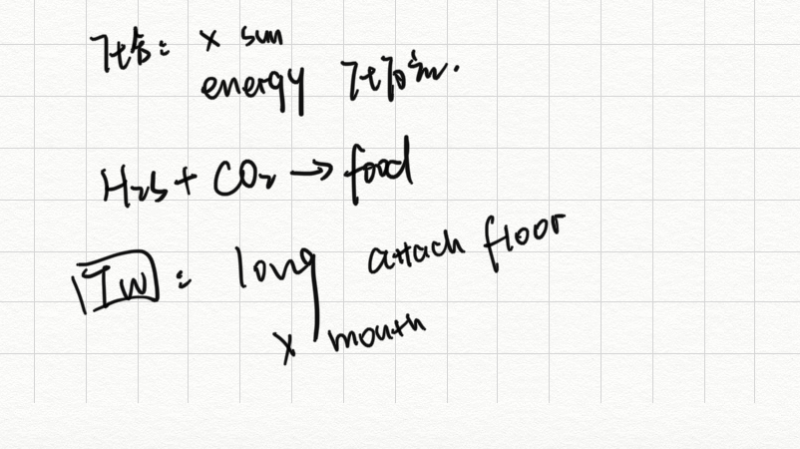 x sun
energy
H2S + CO2 → food
TW : long attach floor
x mouth